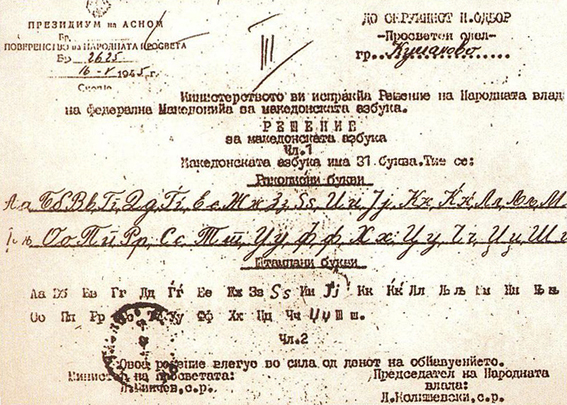 ПРЕЗИДИУМ на АСНОМ
ПОВЕРЕНСТВО за НАРОДНАТА ПРОСВЕТА
Бр. 2625
16-V-1945 г.
Скопје
ДО ОКРУЖНИОТ Н.ОДБОР
-Просветен одел-
гр. Куманово
III
Министерството ви испраќа Решение на Народната влада
на федерална Македонија за македонската азбука.
РЕШЕНИЕ
за македонската азбука
Чл.1
Македонската азбука има 31 буква. Тие се:
Ракописни букви
Аа Бб Вв Гг Дд Ѓѓ Ее Жж Зз Ѕѕ Ии Јј Кк Ќќ Лл Љљ М
Оо Пп Рр Сс Тт Уу Фф Хх Цц Чч Џџ Ш
Штампани букви
Аа Бб Вв Гг Дд Ѓѓ Ее Жж Зз Ѕѕ Ии Јј Кк Ќќ Лл Љљ Мм Нн Њњ
Оо Пп Рр Сс Тт Уу Фф Хх Цц Чч Џџ Шш.
Чл.2
Овоа решение влегуе во сила од денот на објавуението.
Министер на просветата:
Председател на Народната
влада:
Л.Колишевски,с.р.